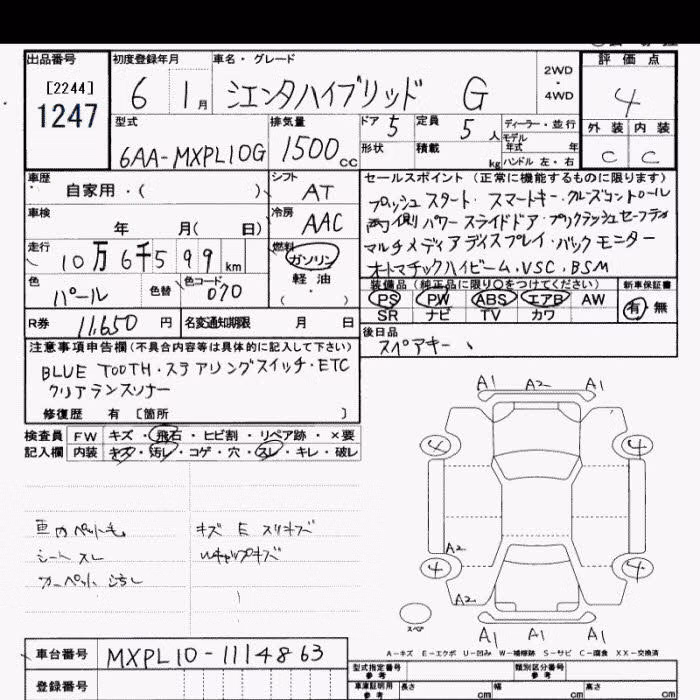 出品番号 初度登録年月 車名・グレード 2WD・4WD 評価点
[2244]
1247
6 1月 シエンタハイブリッド G 4
型式 排気量 ドア 5 定員 5人 ディーラー・並行 外装 内装
モデル年式 年
6AA-MXPL10G 1500cc 形状 積載 kg ハンドル 左・右 C C
車歴 シフト セールスポイント (正常に機能するものに限ります)
自家用・( ) AT プッシュスタート・スマートキー・クルーズコントロール
車検 冷房 両側パワースライドドア・プリクラッシュセーフティ
年 月( 日) AAC マルチメディアディスプレイ・バックモニター
走行 燃料 オートマチックハイビーム・VSC・BSM
10万6千599km ガソリン
軽油
・( )
色 色替 色コード 装備品 (純正品に限り○をつけてください) 新車保証書
パール 070 PS PW ABS エアB AW 有・無
SR ナビ TV カワ
R券 11,650円 名変通知期限 月 日
後日品
スペアキー、
注意事項申告欄(不具合内容等は具体的に記入して下さい)
BLUE TOOTH・ステアリングスイッチ・ETC
クリアランスソナー
修復歴 有 [箇所 ]
検査員 FW キズ・飛石・ヒビ割・リペア跡・×要
記入欄 内装 キズ・汚レ・コゲ・穴・スレ・キレ・破レ
A1 A2 A1
4 4
A2
4 4
A2
A1 A1 A1
スペア
車内ペット毛 キズ E スリキズ
シートスレ
カーペット
A-キズ E-エクボ U-凹み W-補修跡 S-サビ C-腐食 XX-交換済
車台番号 MXPL10-1114863
登録番号
型式指定番号 参考 類別区分番号 参考
車庫証明用 参考 長さ cm 幅 cm 高さ cm